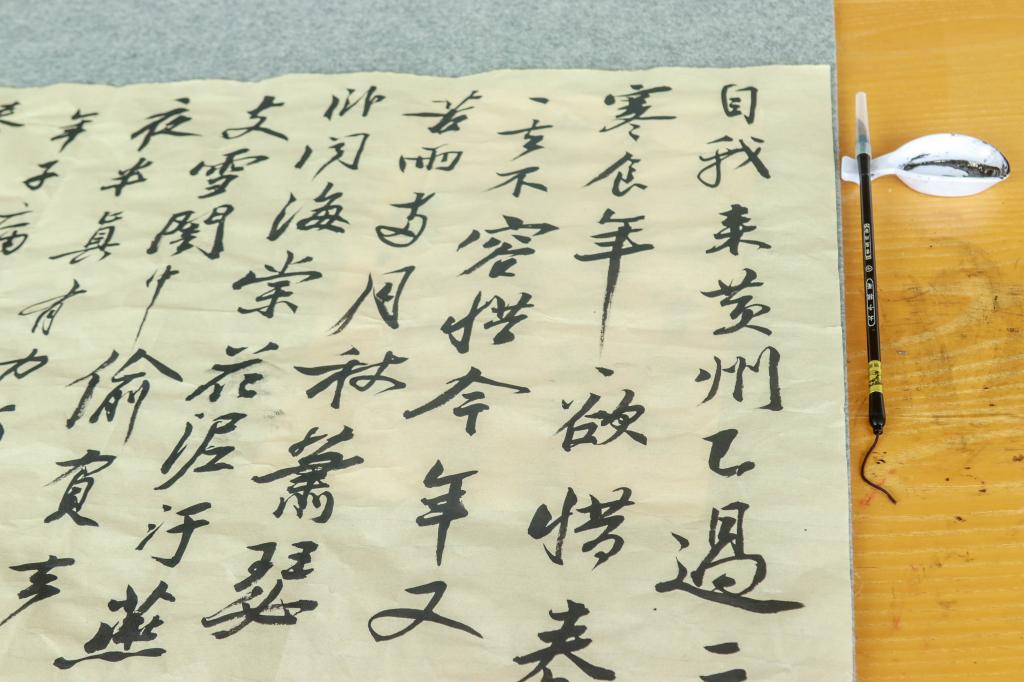 自我来黄州已過
寒食年〻欲惜春
〻去不容惜今年又
苦雨两月秋蕭瑟
卧闻海棠花泥汙燕
支雪闇中偷負去
夜半真有力
年子病